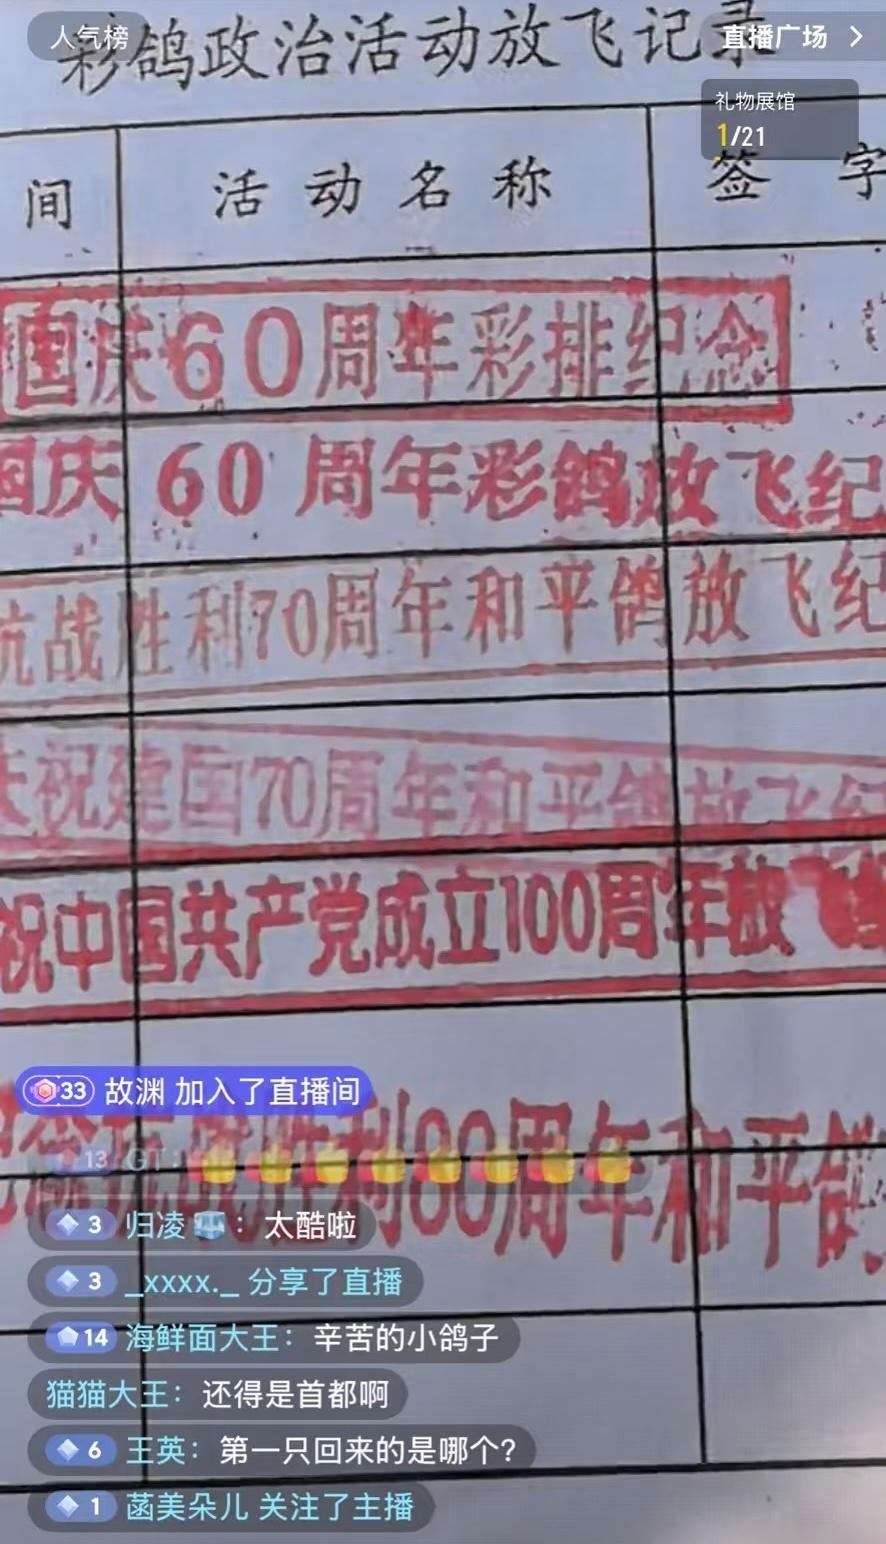 人气榜
直播广场 >
彩鸽政治活动放飞记录
礼物展馆
1/21
间 活动名称 签字
国庆60周年彩排纪念
国庆60周年彩鸽放飞纪
抗战胜利70周年和平鸽放飞纪
庆祝建国70周年和平鸽放飞纪
祝中国共产党成立100周年放飞
33 故渊 加入了直播间
纪念抗战胜利80周年和平鸽
13 GT:
3 归凌: 太酷啦
3 _xxxx._ 分享了直播
14 海鲜面大王: 辛苦的小鸽子
猫猫大王: 还得是首都啊
6 王英: 第一只回来的是哪个?
1 菡美朵儿 关注了主播